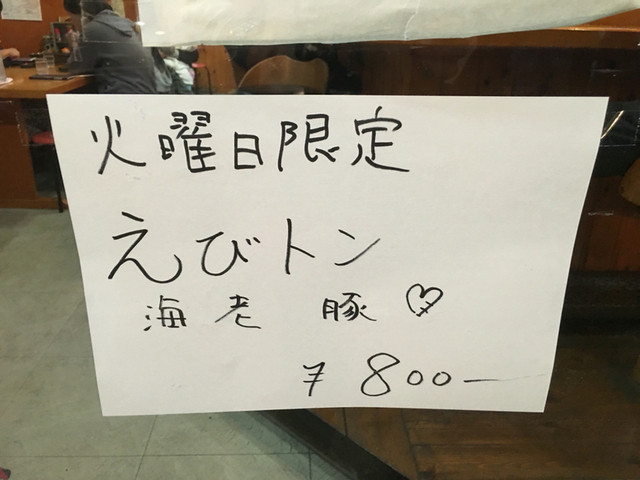 火曜日限定
えびトン
海老 豚♡
¥800-